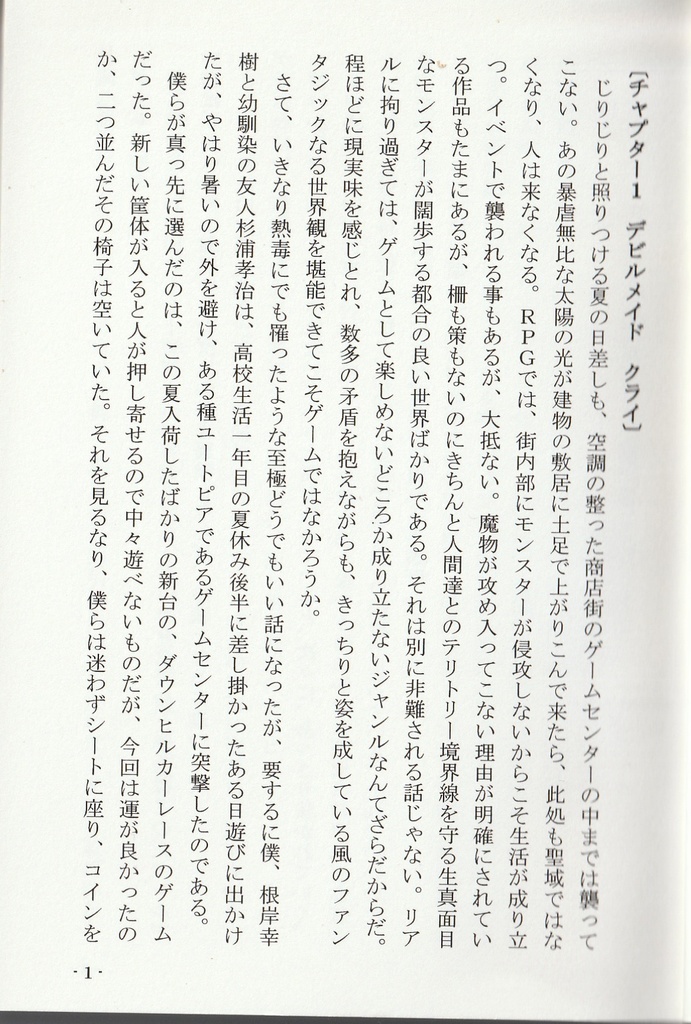 〔チャプター1　デビルメイド　クライ〕
　じりじりと照りつける夏の日差しも、空調の整った商店街のゲームセンターの中までは襲って
こない。あの暴虐無比な太陽の光が建物の敷居に土足で上がりこんで来たら、此処も聖域ではな
くなり、人は来なくなる。RPGでは、街内部にモンスターが侵攻しないからこそ生活が成り立
つ。イベントで襲われる事もあるが、大抵ない。魔物が攻め入ってこない理由が明確にされてい
る作品もたまにあるが、柵も策もないのにきちんと人間達とのテリトリー境界線を守る生真面目
なモンスターが闊歩する都合の良い世界ばかりである。それは別に非難される話じゃない。リア
ルに拘り過ぎては、ゲームとして楽しめないどころか成り立たないジャンルなんてざらだからだ。
程ほどに現実味を感じとれ、数多の矛盾を抱えながらも、きっちりと姿を成している風のファン
タジックなる世界観を堪能できてこそゲームではなかろうか。
　さて、いきなり熱毒にでも罹ったような至極どうでもいい話になったが、要するに僕、根岸幸
樹と幼馴染の友人杉浦孝治は、高校生活一年目の夏休み後半に差し掛かったある日遊びに出かけ
たが、やはり暑いので外を避け、ある種ユートピアであるゲームセンターに突撃したのである。
　僕らが真っ先に選んだのは、この夏入荷したばかりの新台の、ダウンヒルカーレースのゲーム
だった。新しい筐体が入ると人が押し寄せるので中々遊べないものだが、今回は運が良かったの
か、二つ並んだその椅子は空いていた。それを見るなり、僕らは迷わずシートに座り、コインを
- 1 -